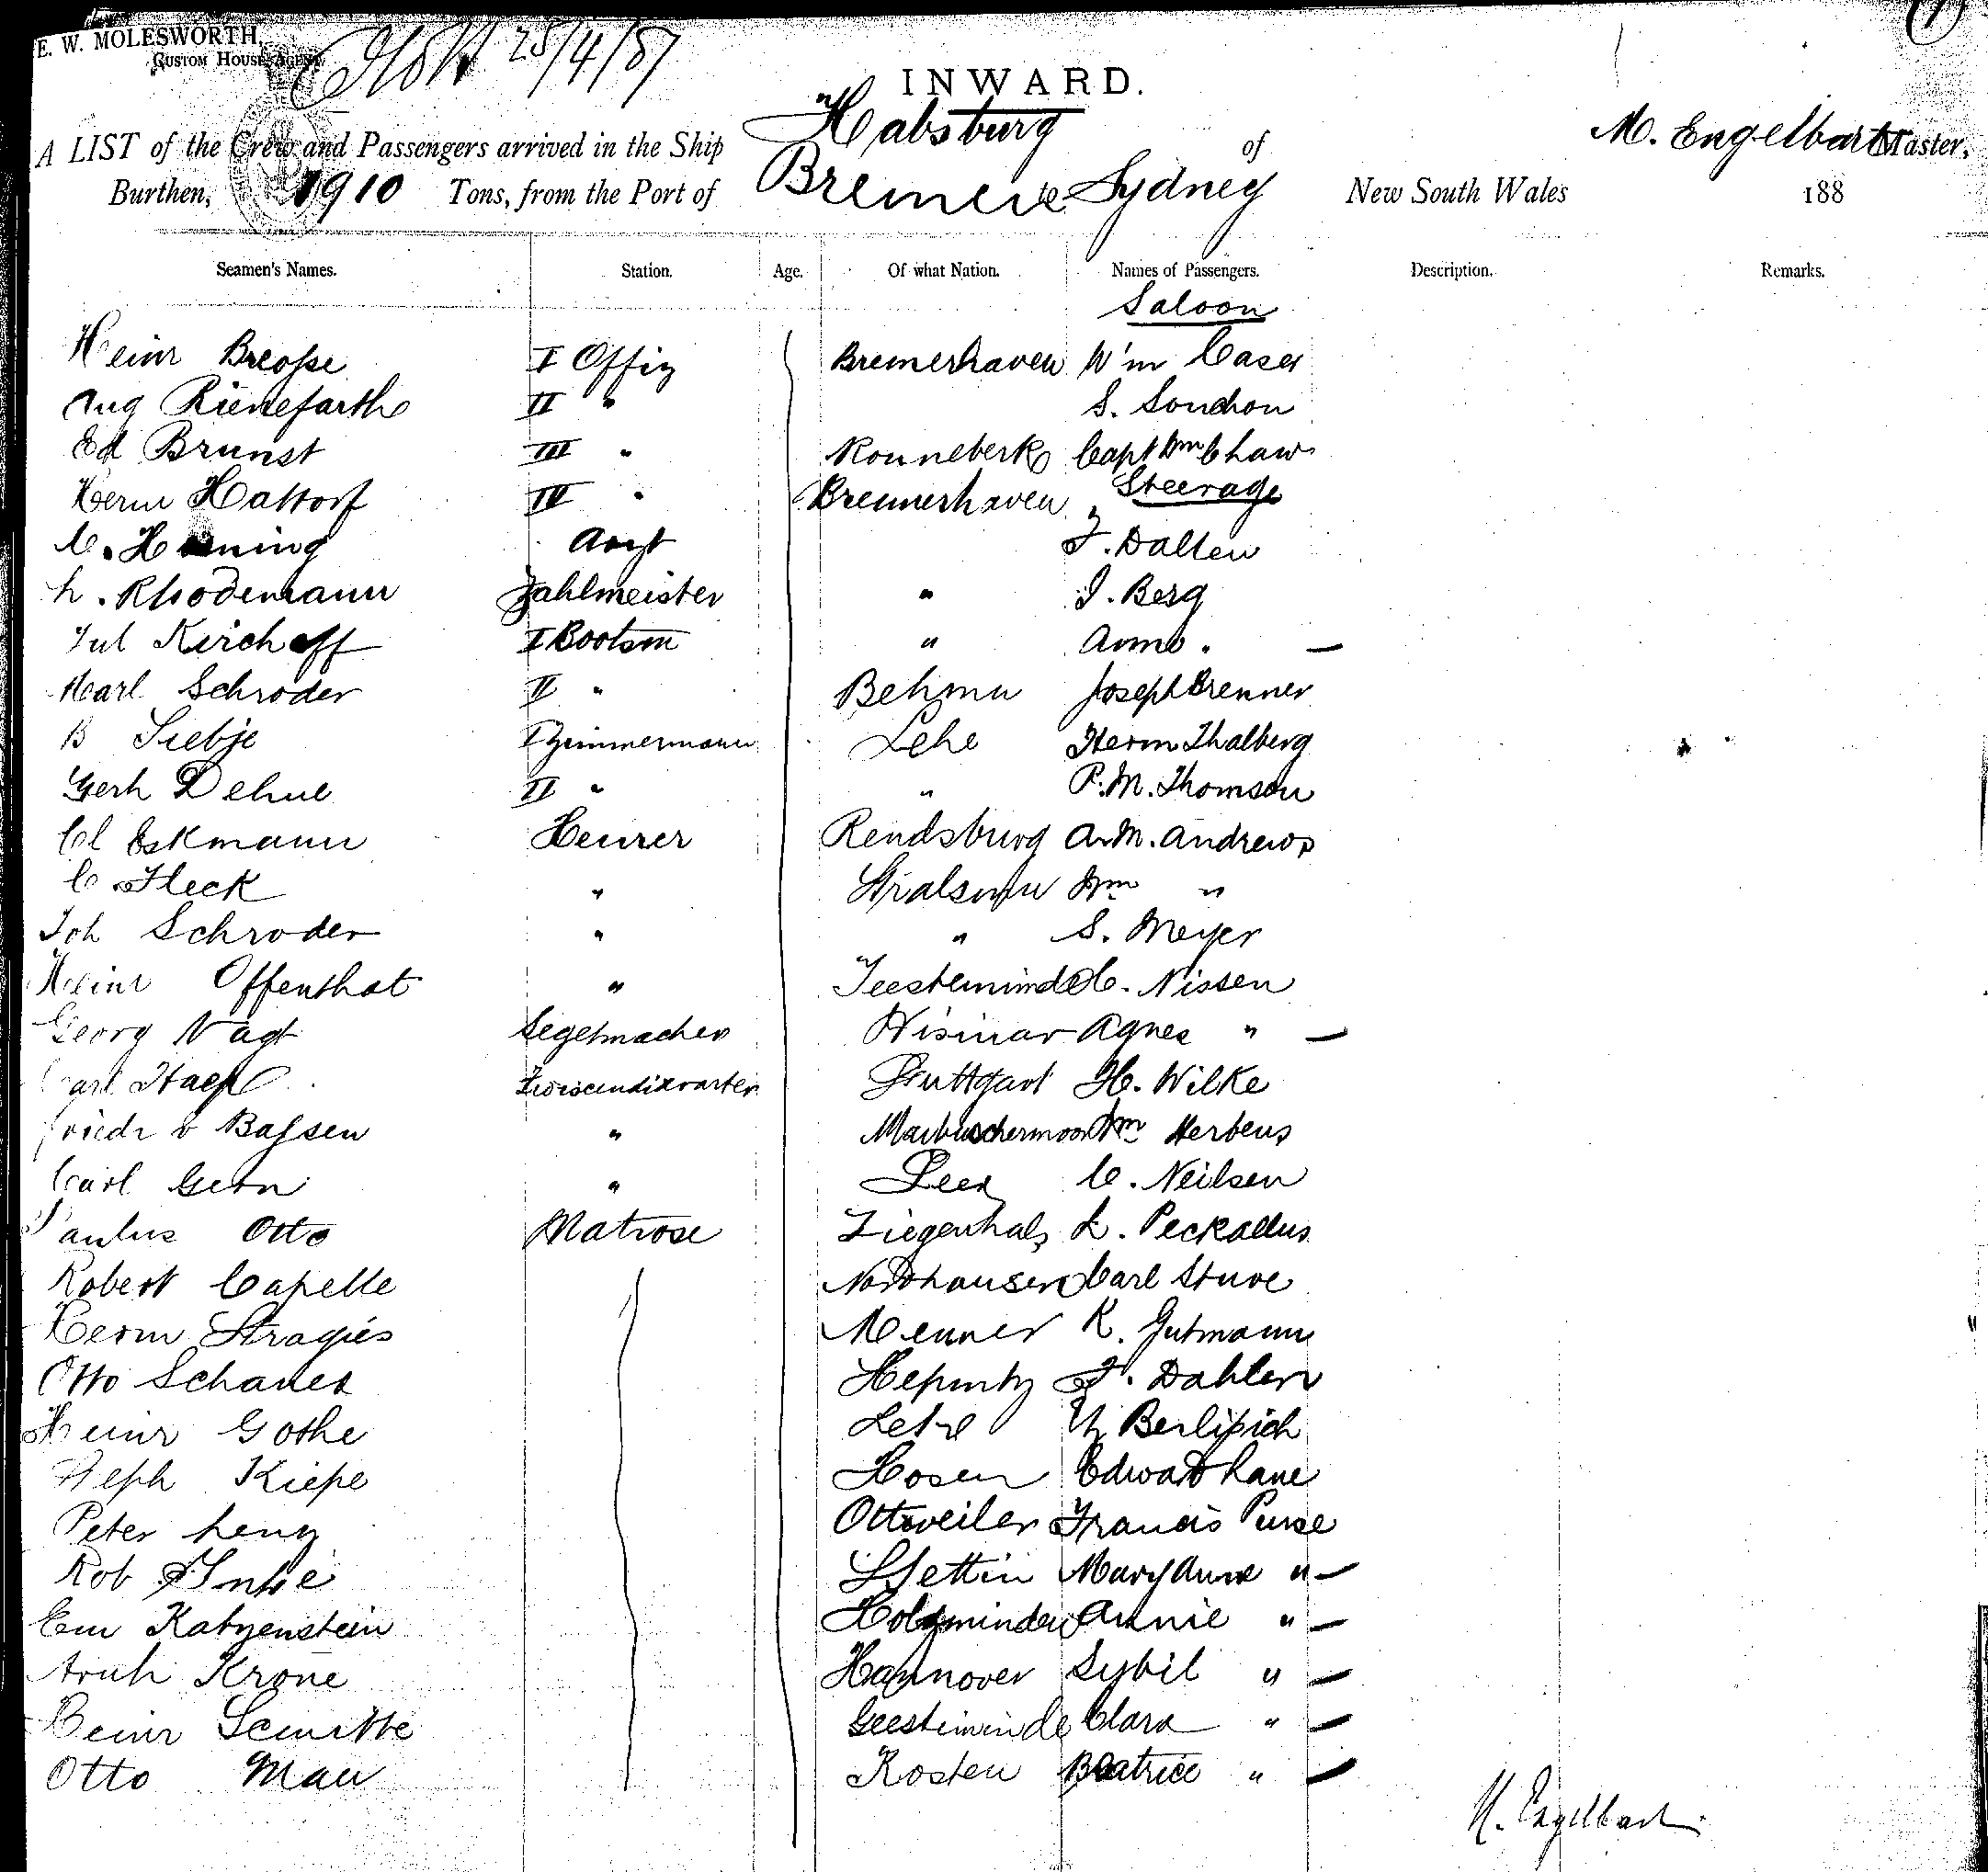 E. W. MOLESWORTH,
CUSTOM HOUSE AGENT
25/4/87
INWARD.
A LIST of the Crew and Passengers arrived in the Ship Habsburg of M. Engelbart Master,
Burthen, 1910 Tons, from the Port of Bremen to Sydney New South Wales 188
Seamen's Names. Station. Age. Of what Nation. Names of Passengers. Description. Remarks.
Saloon
Heinr I Offiz Bremerhaven W'm Caser
Aug Rienefarth II " S. Souchon
Ed Brunst III " Ronnebeck Capt Wm Chaw
Herm Hattorf IV " Bremerhaven Steerage
C. Arzt F. Dallen
L. Rhodemann Zahlmeister " J. Berg
Jul Kirchoff I Bootsm " Anna " —
Karl Schroder II " Behmn Joseph Brenner
B Siebje I Zimmermann Lehe Herm Thalberg
Gerh Dehne II " " P. M. Thomson
Cl Eskmann Heurer Rendsburg A. M. Andrews
C. Fleck " Stralsun Wm "
Joh Schroder " " S. Meyer
Heinr Offenthat " Geestemunde C. Nissen
Georg Vagt Segelmacher Wismar Agnes " —
Carl Stuttgart H. Wilke
Friedr v Bassen " Wm Mertens
Carl Gern " Leer C. Neilsen
Paulus Otto Matrose Ziegenhals L. Peckallus
Robert Capelle Nordhausen Carl Stuve
Herm Stragies Menner K. Gutmann
Otto Schaner F. Dahlen
Heinr Gothe Lehe Berlipich
Steph Kiepe Hosen Edward Lane
Peter Lenz Ottweiler Francis Purse
Rob Stettin Mary Anne " —
Em Katzenstein Holzminden Annie " —
Krone Hannover Sybil " —
Heinr Geestemunde Clara " —
Otto Mau Kosten Beatrice " —
M. Engelbart